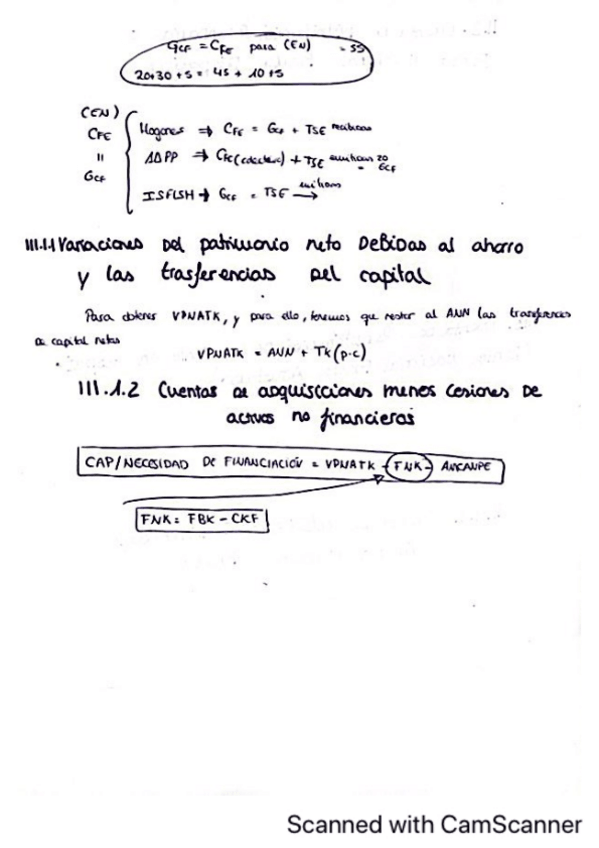 GCF = CFE para (EN) = 55
20+30+5 = 45 + 10 +5
(EN)
CFE
"
GCF
Hogares ⇒ CFE = GCF + TSE recibidas
AAPP ⇒ CFE (colectivo) + TSE = GCF
20
ISFLSH → GCF = TSE →
III.1.1 Variaciones Del patrimonio neto Debidas al ahorro
y las trasferencias Del capital
Para obtener VPNATK, y para ello, tenemos que restar al ANN las transferencias
de capital netas
VPNATK = ANN + TK(p-c)
III.1.2 Cuentas de adquiscciones menos cesiones de
activos no financieros
CAP/NECESIDAD DE FINANCIACIÓN = VPNATK - FNK - ANCANPE
FNK = FBK - CKF
Scanned with CamScanner